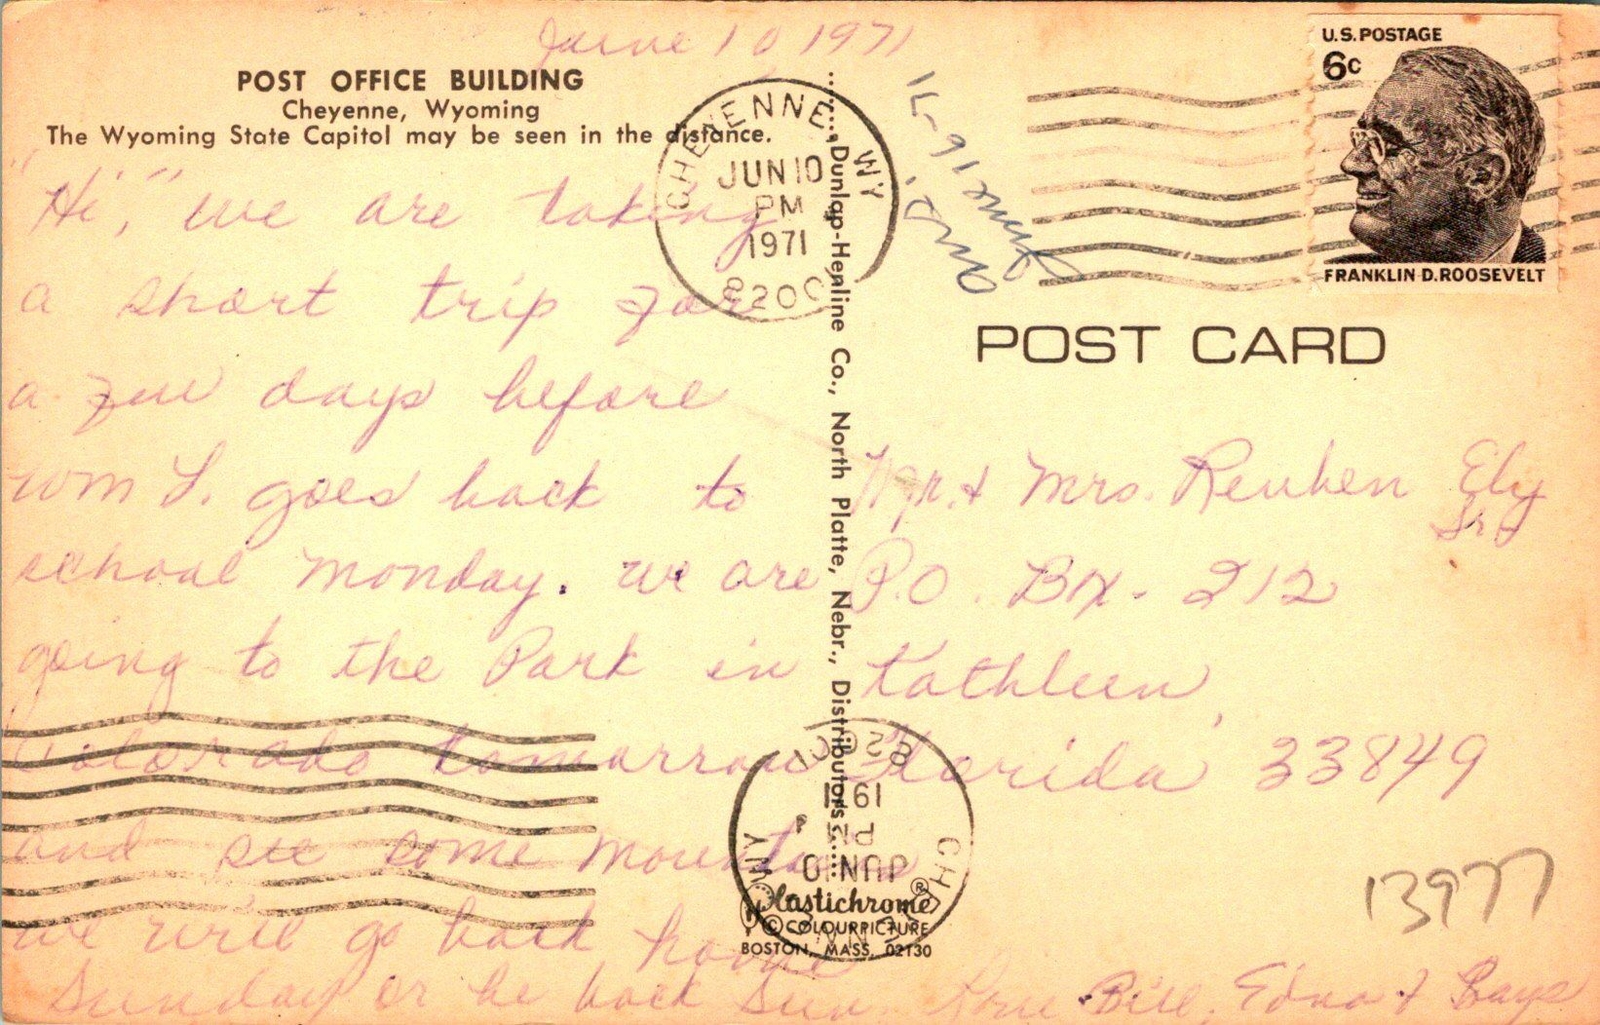 June 10 1971
POST OFFICE BUILDING
Cheyenne, Wyoming
The Wyoming State Capitol may be seen in the distance.
"Hi," we are taking
a short trip for
a few days before
Wm L. goes back to
school Monday. We are
going to the Park in
Colorado tomarrow
and see some mountains
we will go back home
Sunday or be back Sun. Love Bill, Edna & Boys
CHEYENNE, WY
JUN 10
PM
1971
8200
Dunlap-Henline Co., North Platte, Nebr., Distributors
Plastichrome®
© COLOURPICTURE
BOSTON, MASS. 02130
CHEYENNE, WY
JUN 10
PM
1971
8200
16-71
U.S. POSTAGE
6c
FRANKLIN D. ROOSEVELT
POST CARD
Mr. & Mrs. Reuben Ely
Sr
P.O. BX. 212
Kathleen,
Florida 33849
13977